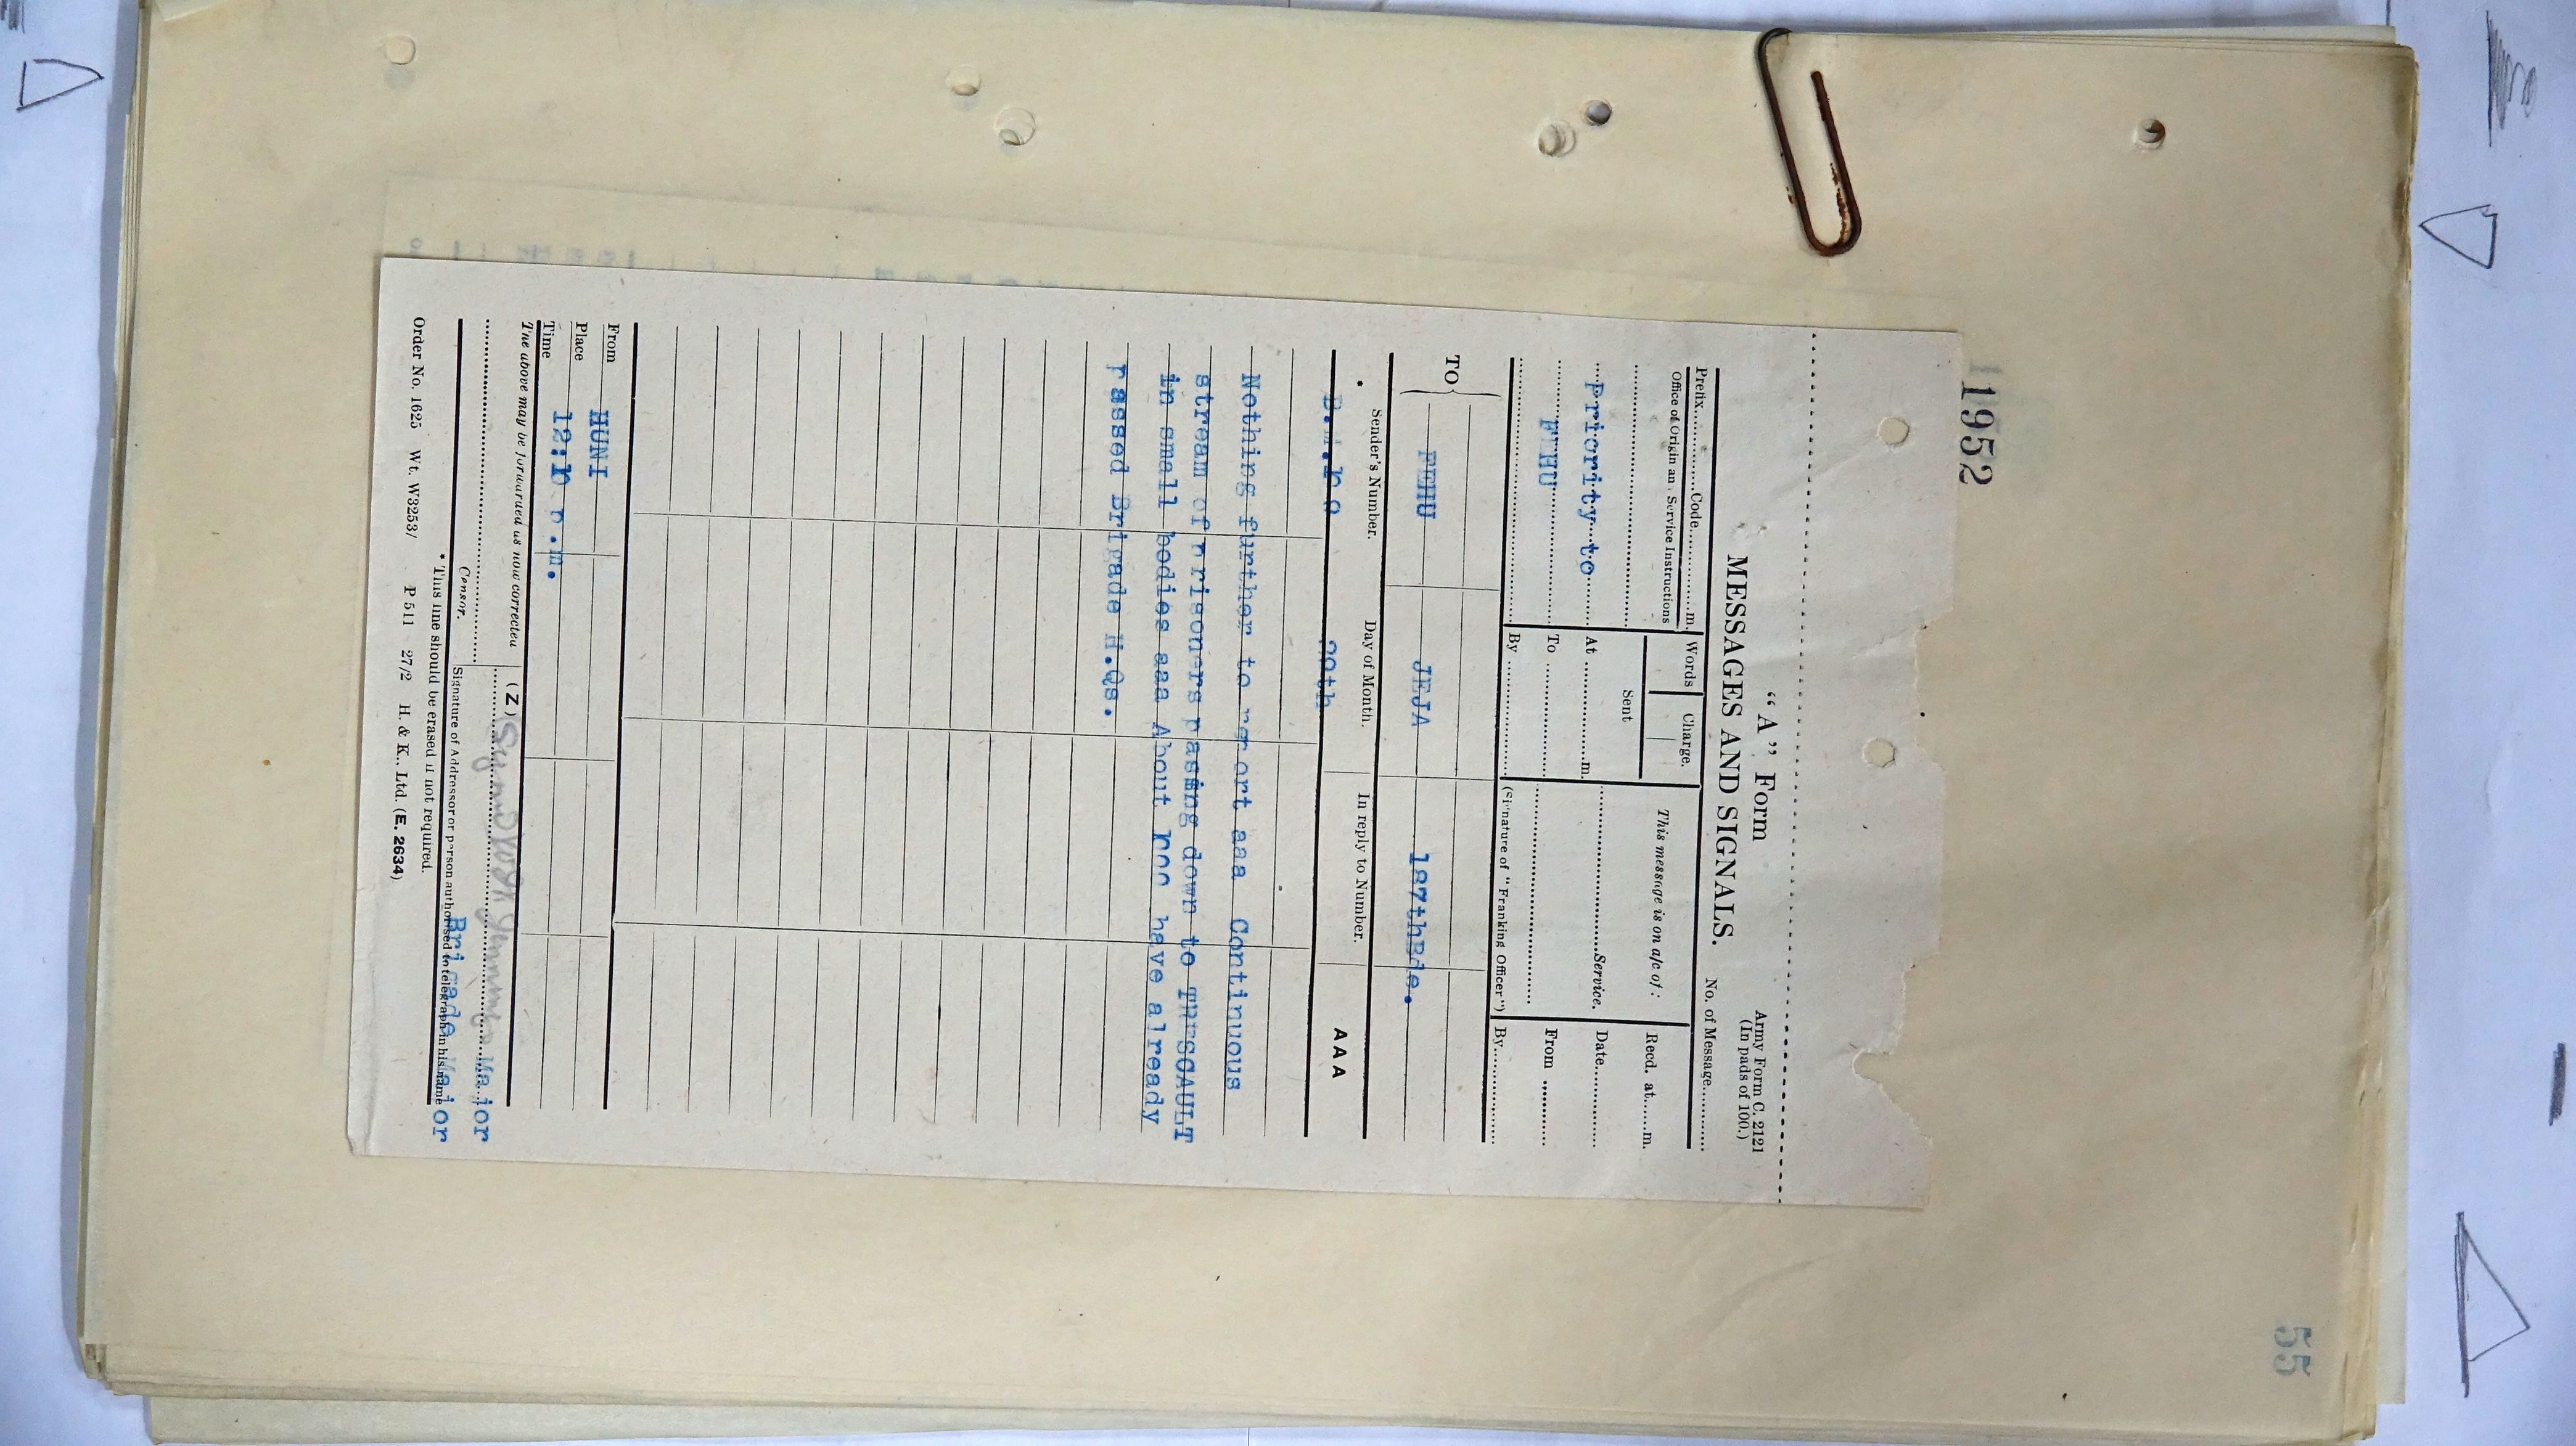 1952
"A" Form
Army Form C. 2121
(In pads of 100.)
MESSAGES AND SIGNALS.
No. of Message..........
Prefix..........Code..........m.
Words
Charge.
This message is on a/c of:
Recd. at......m.
Office of Origin and Service Instructions
Sent
Priority to
At ..........m.
..........Service.
Date..........
FEHU
To ..........
From ..........
By ..........
(Signature of "Franking Officer")
By..........
TO
FEHU
JEJA
187thBde.
Sender's Number.
Day of Month.
In reply to Number.
AAA
Nothing further to report aaa Continuous
stream of prisoners passing down to TRESCAULT
in small bodies aaa About have already
passed Brigade H.Qs.
From HUNI
Place
Time 12:10 p.m.
The above may be forwarded as now corrected
(Z)
Major
Censor.
Signature of Addressor or person authorised to telegraph in his name
Brigade Major
* This line should be erased if not required.
Order No. 1625 Wt. W3253/ P 511 27/2 H. & K., Ltd. (E. 2634)
55